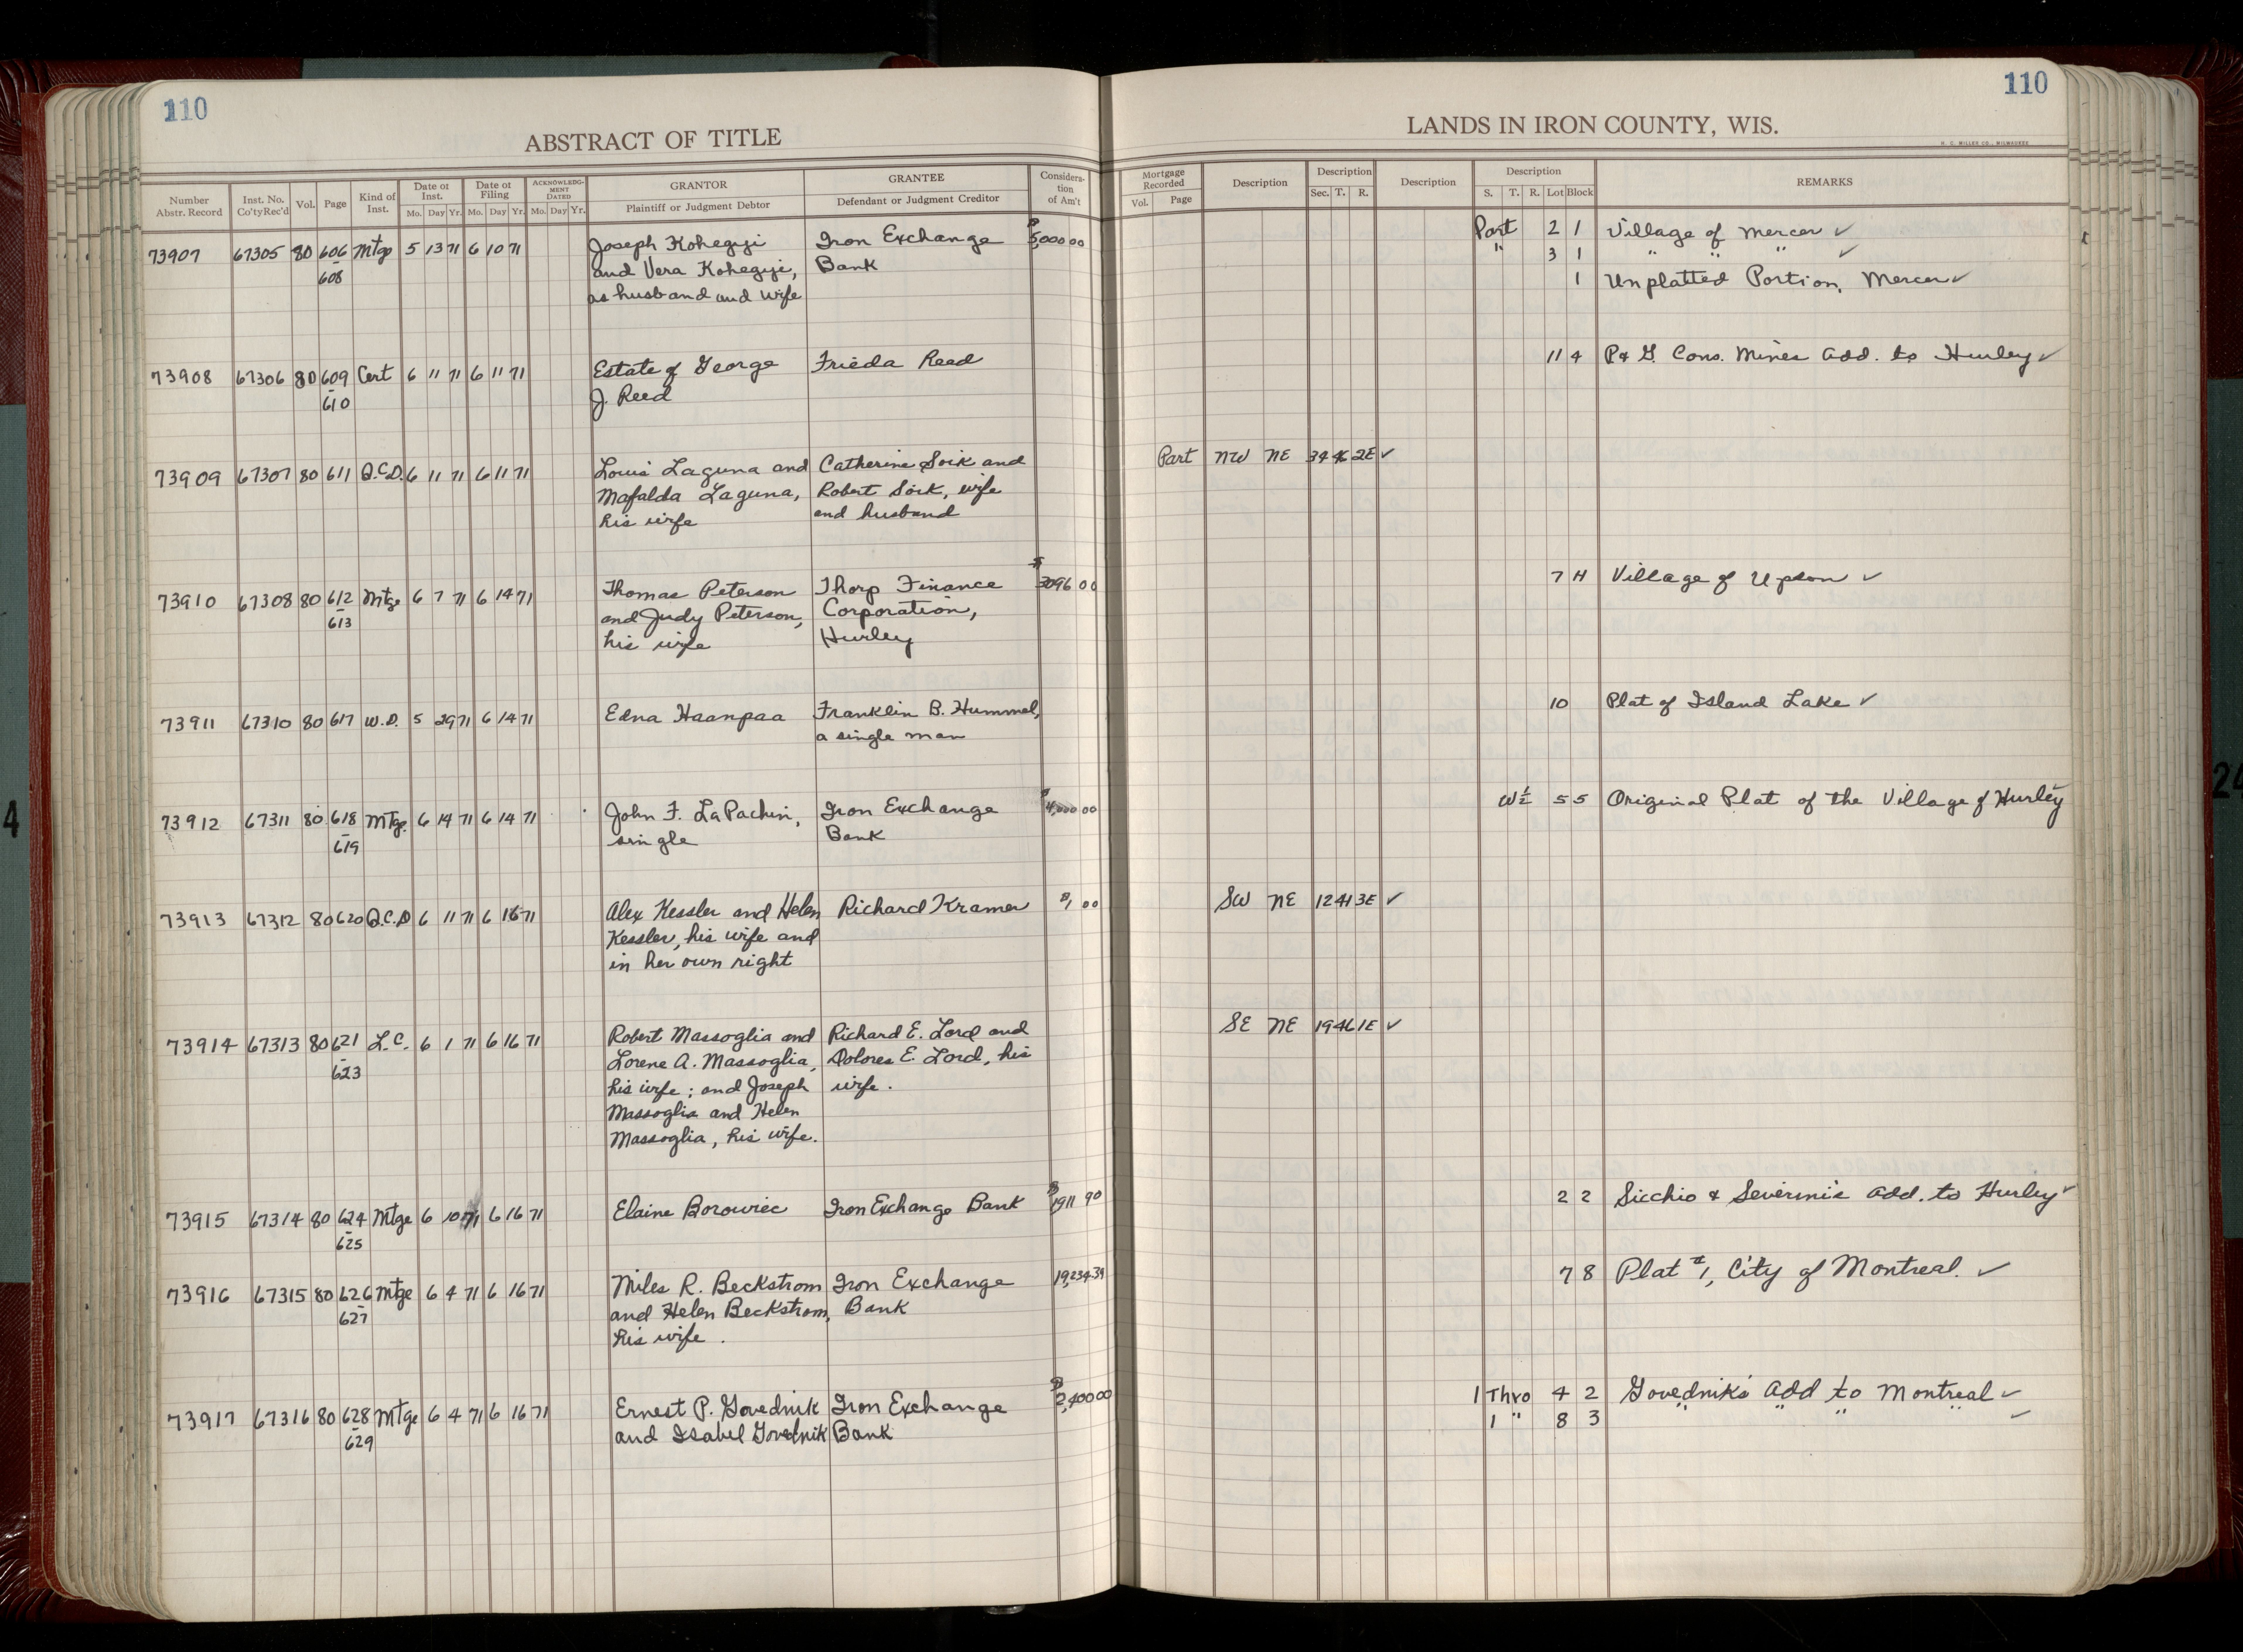 110
110
ABSTRACT OF TITLE
LANDS IN IRON COUNTY, WIS.
H. C. MILLER CO., MILWAUKEE
Number Abstr. Record
Inst. No. Co'ty Rec'd
Vol.
Page
Kind of Inst.
Date of Inst. Mo. Day Yr.
Date of Filing Mo. Day Yr.
ACKNOWLEDGMENT DATED Mo. Day Yr.
GRANTOR Plaintiff or Judgment Debtor
GRANTEE Defendant or Judgment Creditor
Consideration of Am't
Mortgage Recorded Vol. Page
Description
Description Sec. T. R.
Description
Description S. T. R. Lot Block
REMARKS
73907 67305 80 606 Mtg 5 13 71 6 10 71 Joseph Kohegyi Iron Exchange $5,000 00 Part 2 1 Village of Mercer ✓
608 and Vera Kohegyi, Bank " 3 1 " " " ✓
as husband and wife 1 Unplatted Portion, Mercer ✓
73908 67306 80 609 Cert 6 11 71 6 11 71 Estate of George Frieda Reed 11 4 P & G. Cons. Mines Add. to Hurley ✓
610 J. Reed
73909 67307 80 611 Q.C.D. 6 11 71 6 11 71 Louis Laguna and Catherine Soik and Part NW NE 34 46 2E ✓
Mafalda Laguna, Robert Soik, wife
his wife and husband
73910 67308 80 612 Mtge 6 7 71 6 14 71 Thomas Peterson Thorp Finance $3096 00 7 H Village of Upson ✓
613 and Judy Peterson, Corporation,
his wife Hurley
73911 67310 80 617 W.D. 5 29 71 6 14 71 Edna Haanpaa Franklin B. Hummel, 10 Plat of Island Lake ✓
a single man
73912 67311 80 618 Mtge. 6 14 71 6 14 71 John F. LaPachin, Iron Exchange $4,000 00 W½ 5 5 Original Plat of the Village of Hurley
619 single Bank
73913 67312 80 620 Q.C.D 6 11 71 6 16 71 Alex Kessler and Helen Richard Kramer $1 00 SW NE 12 41 3E ✓
Kessler, his wife and
in her own right
73914 67313 80 621 L.C. 6 1 71 6 16 71 Robert Massoglia and Richard E. Lord and SE NE 19 46 1E ✓
623 Lorene A. Massoglia, Dolores E. Lord, his
his wife; and Joseph wife.
Massoglia and Helen
Massoglia, his wife.
73915 67314 80 624 Mtge 6 10 71 6 16 71 Elaine Borowiec Iron Exchange Bank $1911 90 2 2 Sicchio & Severini's Add. to Hurley ✓
625
73916 67315 80 626 Mtge 6 4 71 6 16 71 Miles R. Beckstrom Iron Exchange 19,234.39 7 8 Plat #1, City of Montreal. ✓
627 and Helen Beckstrom, Bank
his wife.
73917 67316 80 628 Mtge 6 4 71 6 16 71 Ernest P. Govednik Iron Exchange $2,400 00 1 Thro 4 2 Govednik's Add to Montreal ✓
629 and Isabel Govednik Bank 1 " 8 3 " " " " ✓
4
24